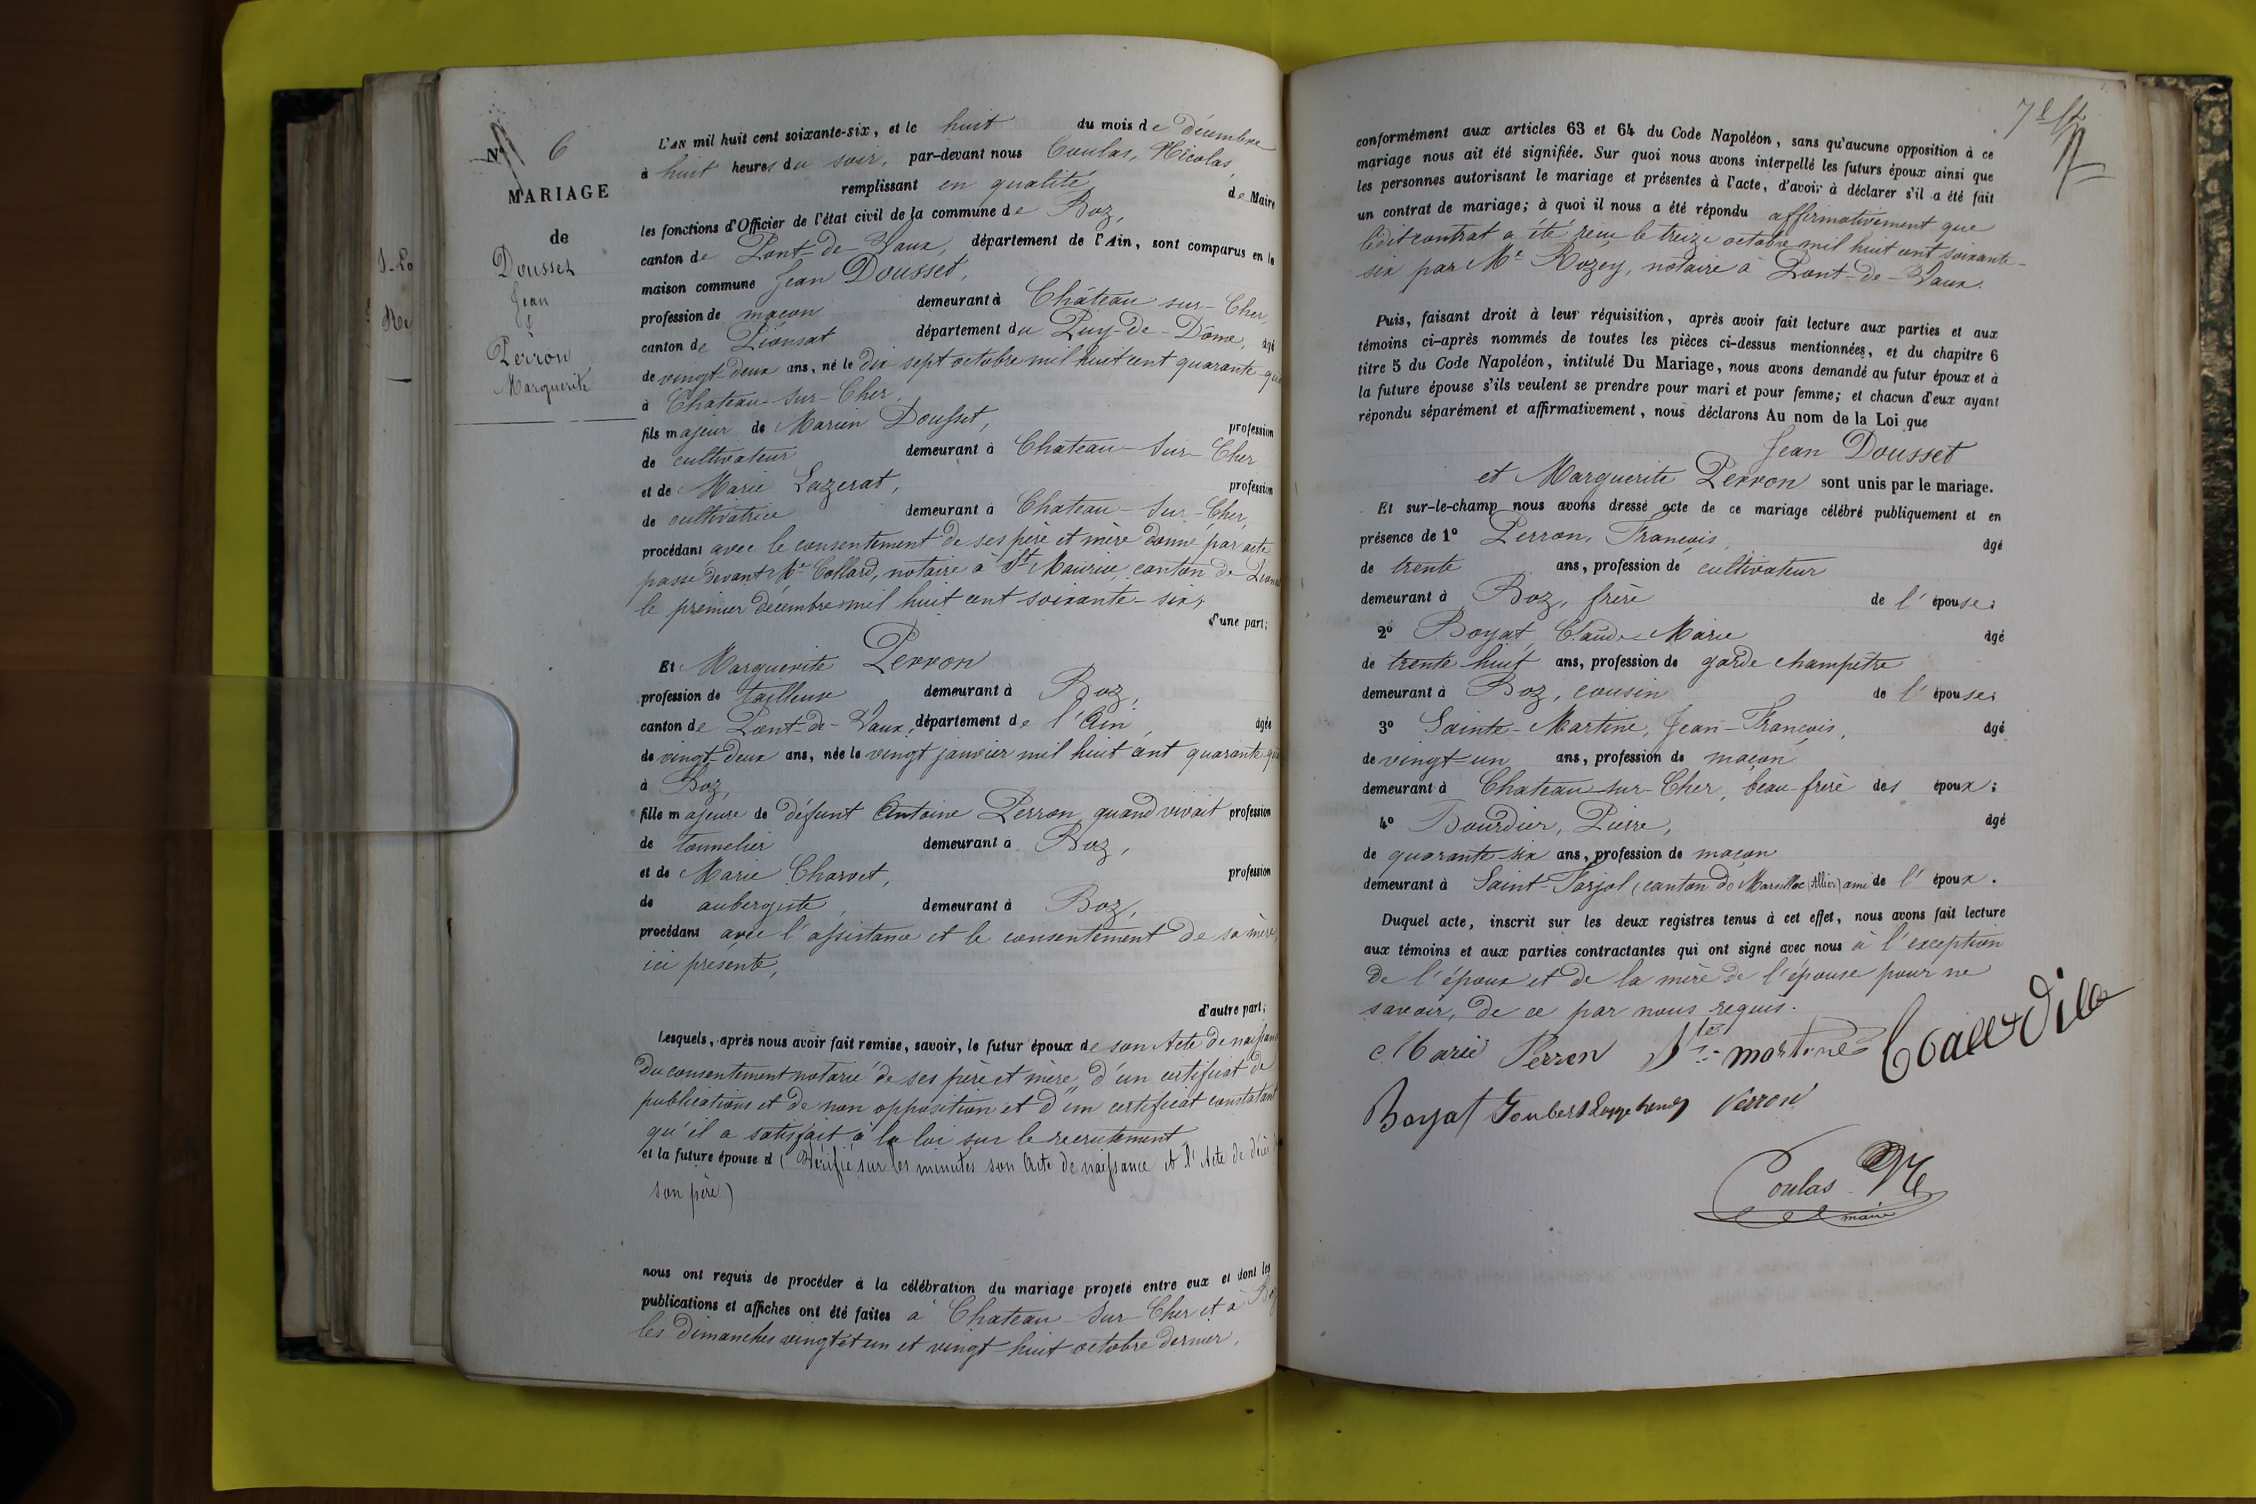 N° 6
MARIAGE
de
Dousset
Jean
&
Perron
Marguerite
L'an mil huit cent soixante-six, et le huit du mois de décembre
à huit heures du soir, par-devant nous Coulas, Nicolas,
remplissant en qualité de Maire
les fonctions d'Officier de l'état civil de la commune de Boz,
canton de Pont-de-Vaux, département de l'Ain, sont comparus en la
maison commune Jean Dousset,
profession de maçon demeurant à Château sur-Cher,
canton de Pionsat département du Puy-de-Dôme, âgé
de vingt-deux ans, né le dix sept octobre mil huit cent quarante
à Chateau-sur-Cher,
fils majeur de Marien Dousset, profession
de cultivateur demeurant à Chateau-sur-Cher
et de Marie Lazerat, profession
de cultivatrice demeurant à Chateau-sur-Cher,
procédant avec le consentement de ses père et mère donné par acte
passé devant Me Collard, notaire à St Maurice, canton de
le premier décembre mil huit cent soixante-six,
d'une part;
Et Marguerite Perron
profession de tailleuse demeurant à Boz,
canton de Pont-de-Vaux, département de l'Ain, âgée
de vingt-deux ans, née le vingt janvier mil huit cent quarante
à Boz,
fille majeure de défunt Antoine Perron quand vivait profession
de tonnelier demeurant à Boz,
et de Marie Charvet, profession
de aubergiste, demeurant à Boz,
procédant avec l'assistance et le consentement de sa mère,
ici présente,
d'autre part;
Lesquels, après nous avoir fait remise, savoir, le futur époux de son Acte de naissance
du consentement notarié de ses père et mère, d'un certificat de
publications et de non opposition et d'un certificat constatant
qu'il a satisfait à la loi sur le recrutement
et la future épouse d (Vérifié sur les minutes son Acte de naissance et l'Acte de décès
son père)
nous ont requis de procéder à la célébration du mariage projeté entre eux et dont les
publications et affiches ont été faites à Chateau-sur-Cher et à Boz
les dimanches vingt et un et vingt-huit octobre dernier,
conformément aux articles 63 et 64 du Code Napoléon, sans qu'aucune opposition à ce
mariage nous ait été signifiée. Sur quoi nous avons interpellé les futurs époux ainsi que
les personnes autorisant le mariage et présentes à l'acte, d'avoir à déclarer s'il a été fait
un contrat de mariage; à quoi il nous a été répondu affirmativement que
ledit contrat a été reçu le treize octobre mil huit cent soixante-
six par Me Rozey, notaire à Pont-de-Vaux.
Puis, faisant droit à leur réquisition, après avoir fait lecture aux parties et aux
témoins ci-après nommés de toutes les pièces ci-dessus mentionnées, et du chapitre 6
titre 5 du Code Napoléon, intitulé Du Mariage, nous avons demandé au futur époux et à
la future épouse s'ils veulent se prendre pour mari et pour femme; et chacun d'eux ayant
répondu séparément et affirmativement, nous déclarons Au nom de la Loi que
Jean Dousset
et Marguerite Perron sont unis par le mariage.
Et sur-le-champ nous avons dressé acte de ce mariage célébré publiquement et en
présence de 1° Perron, François, âgé
de trente ans, profession de cultivateur
demeurant à Boz, frère de l'épouse;
2° Boyat, Claude-Marie âgé
de trente huit ans, profession de garde champêtre
demeurant à Boz, cousin de l'épouse;
3° Sainte-Martine, Jean-François, âgé
de vingt-un ans, profession de maçon
demeurant à Chateau-sur-Cher, beau-frère des époux;
4° Bourdier, Pierre, âgé
de quarante-six ans, profession de maçon
demeurant à Saint-Farjol (canton de Marcillac (Allier) ami de l'époux.
Duquel acte, inscrit sur les deux registres tenus à cet effet, nous avons fait lecture
aux témoins et aux parties contractantes qui ont signé avec nous à l'exception
de l'époux et de la mère de l'épouse pour ne
savoir, de ce par nous requis.
Marie Perron Ste martine
Boyat Perron
Coulas
maire